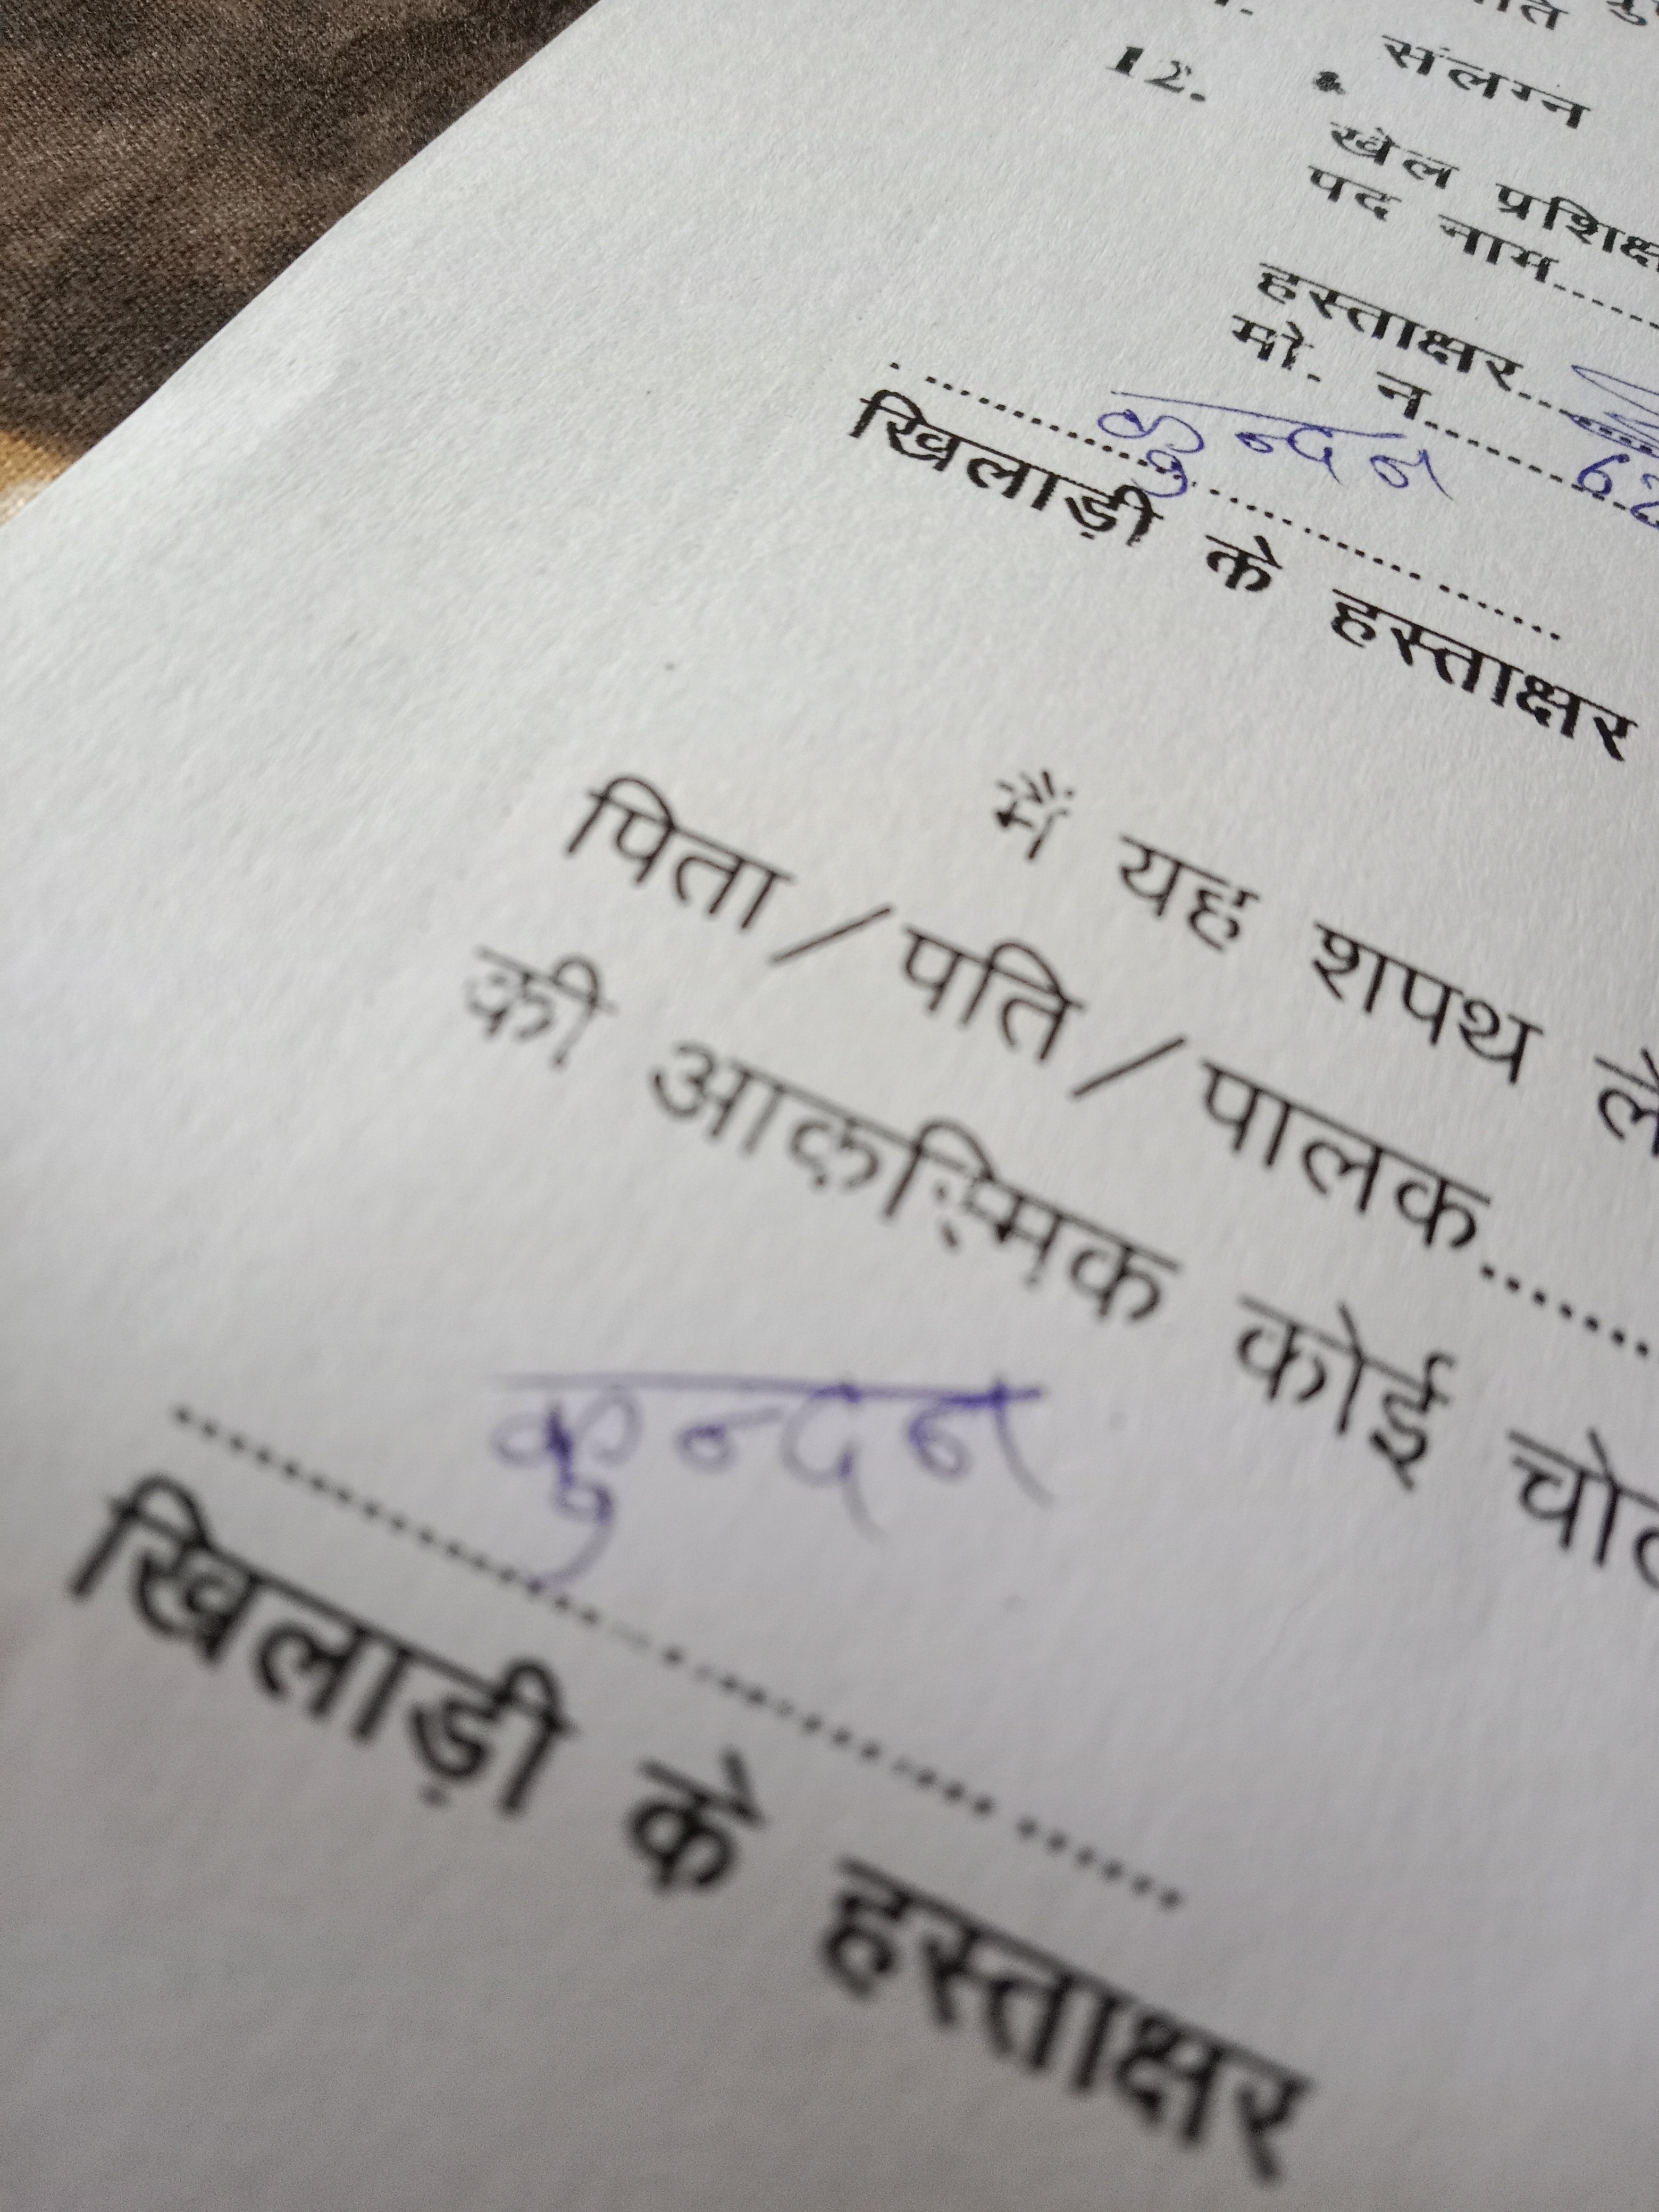 संलग्न
12.
खेल
पद नाम......
हस्ताक्षर......
मो. न......62
कुन्दन
खिलाड़ी के हस्ताक्षर
मैं यह शपथ
पिता / पति / पालक......
की आकस्मिक कोई
कुन्दन
खिलाड़ी के हस्ताक्षर